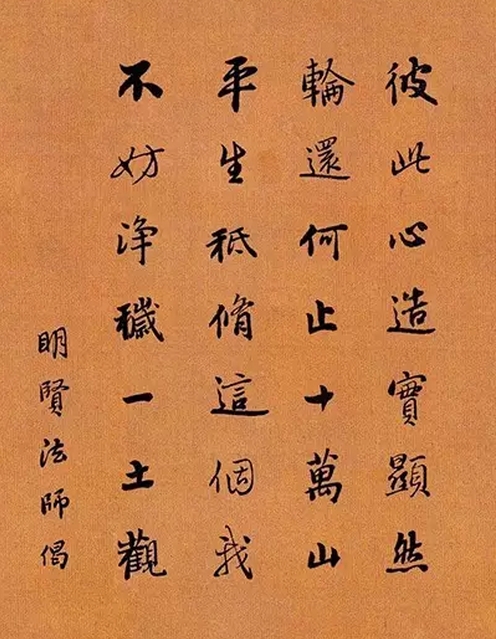 彼此心造實顯然
輪還何止十萬山
平生秪脩這個我
不妨浄穢一土觀
明賢法師偈